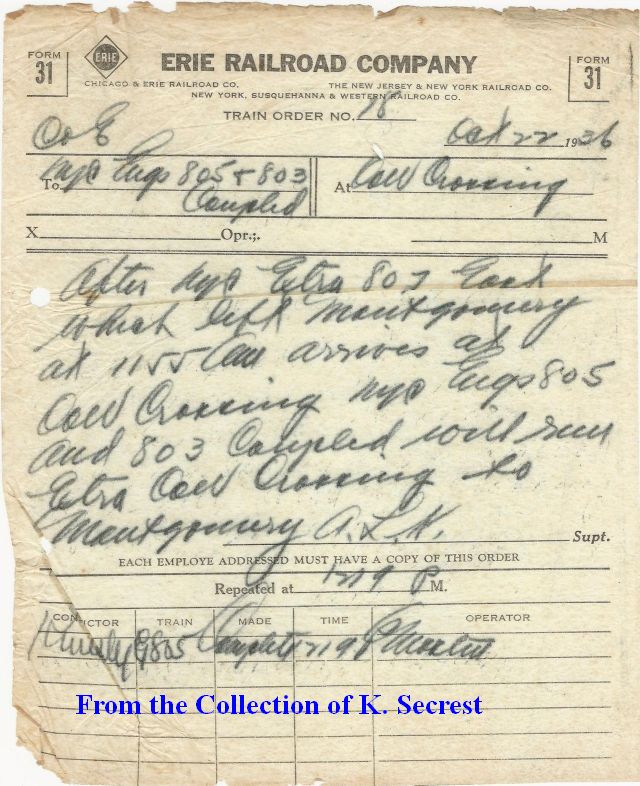 FORM 31
ERIE
ERIE RAILROAD COMPANY
FORM 31
CHICAGO & ERIE RAILROAD CO. THE NEW JERSEY & NEW YORK RAILROAD CO.
NEW YORK, SUSQUEHANNA & WESTERN RAILROAD CO.
TRAIN ORDER NO. 18
C&E Oct 22 1936
To Engs 805 & 803 At O&W Crossing
Coupled
X Opr.;. M
After Extra 803 East
which left Montgomery
at 1155 am arrives at
O&W Crossing Engs 805
and 803 Coupled will run
Extra O&W Crossing to
Montgomery A.L.K. Supt.
EACH EMPLOYE ADDRESSED MUST HAVE A COPY OF THIS ORDER
Repeated at 1219 P M.
CONDUCTOR TRAIN MADE TIME OPERATOR
E805 Complete 1219 P
From the Collection of K. Secrest